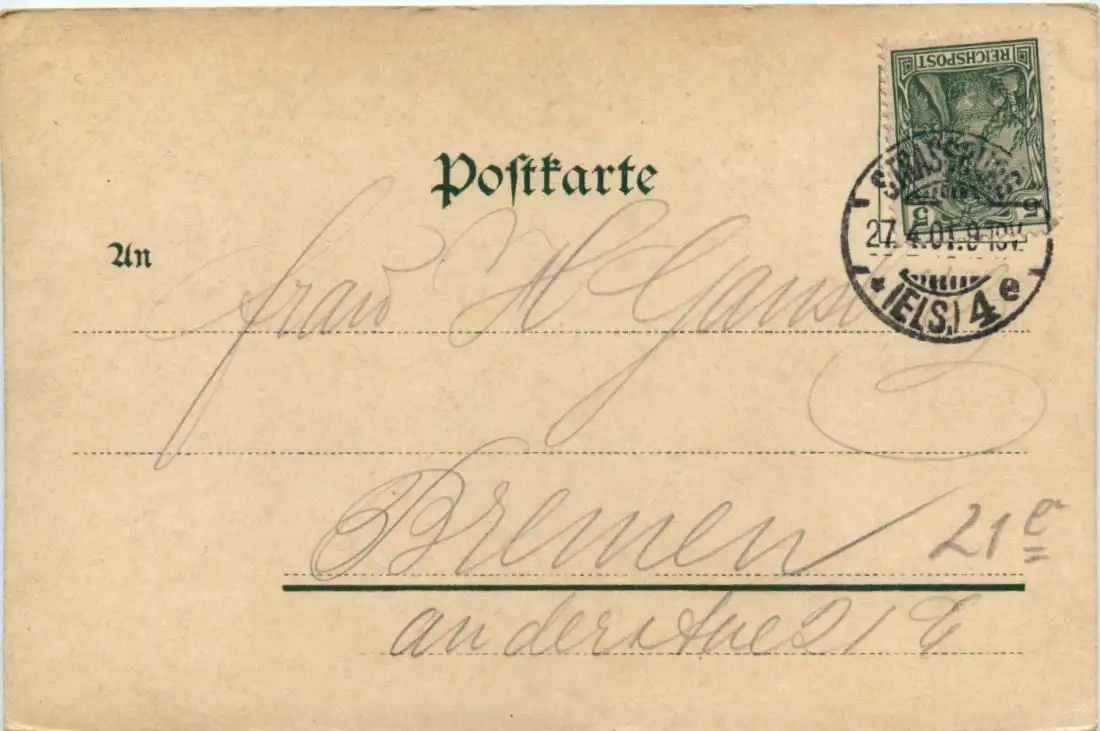 REICHSPOST
5 5
Postkarte
STRASSBURG
27.4.01. 9-10V.
* (ELS.) 4 e
An
Frau H Gansl
Bremen 21 e
an der Aue 21 E